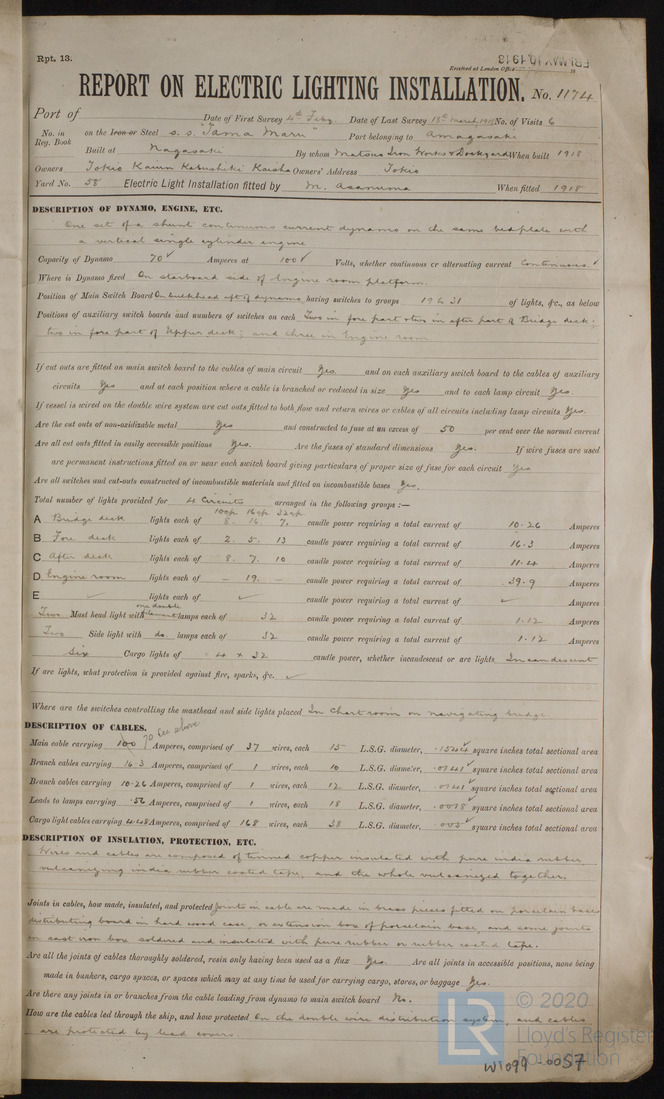 Rpt. 13.
FRI. MAY 10. 1918
Received at London Office
REPORT ON ELECTRIC LIGHTING INSTALLATION. No. 1174
Port of Date of First Survey 4th Feby Date of Last Survey 15th March 1918 No. of Visits 6
No. in Reg. Book on the Iron or Steel S.S. "Tama Maru" Port belonging to Amagasaki
Built at Nagasaki By whom Matsuo Iron Works & Dockyard When built 1918
Owners Tokio Kaiun Kabushiki Kaisha Owners' Address Tokio
Yard No. 58 Electric Light Installation fitted by M. Asanuma When fitted 1918
DESCRIPTION OF DYNAMO, ENGINE, ETC.
One set of a shunt continuous current dynamo on the same bedplate with
a vertical single cylinder engine
Capacity of Dynamo 70 ✓ Amperes at 100 ✓ Volts, whether continuous or alternating current Continuous ✓
Where is Dynamo fixed On starboard side of Engine room platform.
Position of Main Switch Board On bulkhead aft of dynamo, having switches to groups 19 & 31 of lights, &c., as below
Positions of auxiliary switch boards and numbers of switches on each Two in fore part & two in after part of Bridge deck;
two in fore part of Upper deck; and three in Engine room
If cut outs are fitted on main switch board to the cables of main circuit Yes and on each auxiliary switch board to the cables of auxiliary
circuits Yes and at each position where a cable is branched or reduced in size Yes and to each lamp circuit Yes
If vessel is wired on the double wire system are cut outs fitted to both flow and return wires or cables of all circuits including lamp circuits Yes.
Are the cut outs of non-oxidizable metal Yes and constructed to fuse at an excess of 50 per cent over the normal current
Are all cut outs fitted in easily accessible positions Yes. Are the fuses of standard dimensions Yes. If wire fuses are used
are permanent instructions fitted on or near each switch board giving particulars of proper size of fuse for each circuit Yes
Are all switches and cut-outs constructed of incombustible materials and fitted on incombustible bases Yes.
Total number of lights provided for 4 Circuits arranged in the following groups :—
10 cp. 16 cp. 32 cp.
A Bridge deck lights each of 8. 16. 7. candle power requiring a total current of 10.26 Amperes
B Fore deck lights each of 2. 5. 13 candle power requiring a total current of 16.3 Amperes
C After deck lights each of 8. 7. 10 candle power requiring a total current of 11.4 Amperes
D Engine room lights each of – 19. – candle power requiring a total current of 39.9 Amperes
E ✓ lights each of ✓ candle power requiring a total current of ✓ Amperes
Two Mast head light with one double filament lamps each of 32 candle power requiring a total current of 1.12 Amperes
Two Side light with do lamps each of 32 candle power requiring a total current of 1.12 Amperes
Six Cargo lights of 4 x 32 candle power, whether incandescent or arc lights Incandescent
If arc lights, what protection is provided against fire, sparks, &c. ✓
Where are the switches controlling the masthead and side lights placed In Chart room on navigating bridge
DESCRIPTION OF CABLES.
70 See above
Main cable carrying 100 Amperes, comprised of 37 wires, each 15 L.S.G. diameter, .1544 ✓ square inches total sectional area
Branch cables carrying 16.3 Amperes, comprised of 1 wires, each 10 L.S.G. diameter, .0141 ✓ square inches total sectional area
Branch cables carrying 10.26 Amperes, comprised of 1 wires, each 12 L.S.G. diameter, .0141 ✓ square inches total sectional area
Leads to lamps carrying .56 Amperes, comprised of 1 wires, each 18 L.S.G. diameter, .0018 ✓ square inches total sectional area
Cargo light cables carrying 4.48 Amperes, comprised of 168 wires, each 38 L.S.G. diameter, .005 ✓ square inches total sectional area
DESCRIPTION OF INSULATION, PROTECTION, ETC.
Wires and cables are composed of tinned copper insulated with pure india rubber
vulcanizing india rubber coated tape, and the whole vulcanized together.
Joints in cables, how made, insulated, and protected Joints in cable are made in brass pieces fitted on porcelain bases
distributing board in hard wood case or extension box of porcelain base, and some joints
in cast iron box soldered and insulated with pure rubber or rubber coated tape.
Are all the joints of cables thoroughly soldered, resin only having been used as a flux Yes. Are all joints in accessible positions, none being
made in bunkers, cargo spaces, or spaces which may at any time be used for carrying cargo, stores, or baggage Yes.
Are there any joints in or branches from the cable leading from dynamo to main switch board No.
How are the cables led through the ship, and how protected On the double wire distribution system, and cables
are protected by lead covers.
LR
© 2020
Lloyd's Register
Foundation
W1099-0057